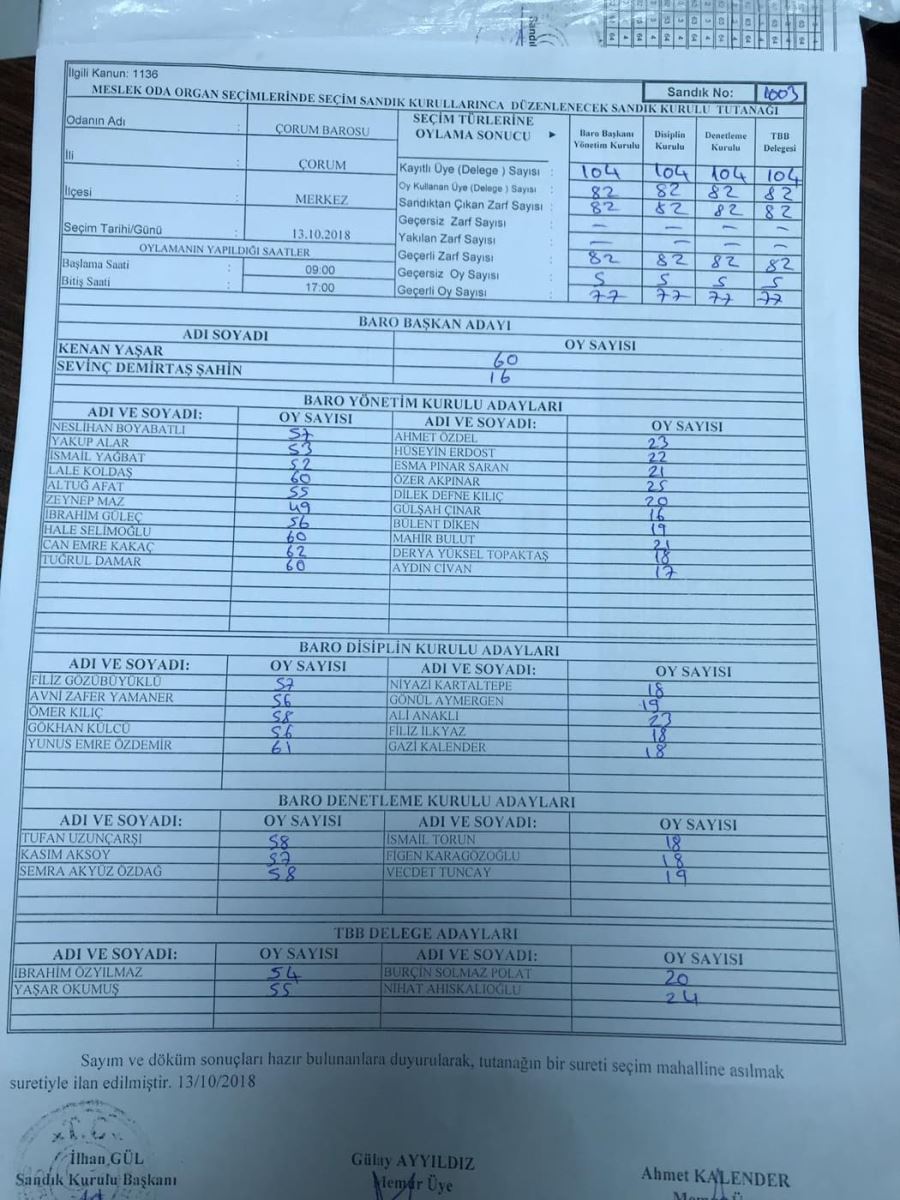 İlgili Kanun: 1136
Sandık No: 1003
MESLEK ODA ORGAN SEÇİMLERİNDE SEÇİM SANDIK KURULLARINCA DÜZENLENECEK SANDIK KURULU TUTANAĞI
Odanın Adı : ÇORUM BAROSU
İli : ÇORUM
İlçesi : MERKEZ
Seçim Tarihi/Günü : 13.10.2018
OYLAMANIN YAPILDIĞI SAATLER
Başlama Saati : 09:00
Bitiş Saati : 17:00
SEÇİM TÜRLERİNE OYLAMA SONUCU ► Baro Başkanı Yönetim Kurulu Disiplin Kurulu Denetleme Kurulu TBB Delegesi
Kayıtlı Üye (Delege ) Sayısı : 104 104 104 104
Oy Kullanan Üye (Delege ) Sayısı : 82 82 82 82
Sandıktan Çıkan Zarf Sayısı : 82 82 82 82
Geçersiz Zarf Sayısı : – – – –
Yakılan Zarf Sayısı : – – – –
Geçerli Zarf Sayısı : 82 82 82 82
Geçersiz Oy Sayısı : 5 5 5 5
Geçerli Oy Sayısı : 77 77 77 77
BARO BAŞKAN ADAYI
ADI SOYADI OY SAYISI
KENAN YAŞAR 60
SEVİNÇ DEMİRTAŞ ŞAHİN 16
BARO YÖNETİM KURULU ADAYLARI
ADI VE SOYADI: OY SAYISI ADI VE SOYADI: OY SAYISI
NESLİHAN BOYABATLI 57 AHMET ÖZDEL 23
YAKUP ALAR 53 HÜSEYİN ERDOST 22
İSMAİL YAĞBAT 52 ESMA PINAR SARAN 21
LALE KOLDAŞ 60 ÖZER AKPINAR 25
ALTUĞ AFAT 55 DİLEK DEFNE KILIÇ 20
ZEYNEP MAZ 49 GÜLŞAH ÇINAR 16
İBRAHİM GÜLEÇ 56 BÜLENT DİKEN 19
HALE SELİMOĞLU 60 MAHİR BULUT 21
CAN EMRE KAKAÇ 62 DERYA YÜKSEL TOPAKTAŞ 18
TUĞRUL DAMAR 60 AYDIN CİVAN 17
BARO DİSİPLİN KURULU ADAYLARI
ADI VE SOYADI: OY SAYISI ADI VE SOYADI: OY SAYISI
FİLİZ GÖZÜBÜYÜKLÜ 57 NİYAZİ KARTALTEPE 18
AVNİ ZAFER YAMANER 56 GÖNÜL AYMERGEN 19
ÖMER KILIÇ 58 ALİ ANAKLI 23
GÖKHAN KÜLCÜ 56 FİLİZ İLKYAZ 18
YUNUS EMRE ÖZDEMİR 61 GAZİ KALENDER 18
BARO DENETLEME KURULU ADAYLARI
ADI VE SOYADI: OY SAYISI ADI VE SOYADI: OY SAYISI
TUFAN UZUNÇARŞI 58 İSMAİL TORUN 18
KASIM AKSOY 57 FİGEN KARAGÖZOĞLU 18
SEMRA AKYÜZ ÖZDAĞ 58 VECDET TUNCAY 19
TBB DELEGE ADAYLARI
ADI VE SOYADI: OY SAYISI ADI VE SOYADI: OY SAYISI
İBRAHİM ÖZYILMAZ 54 BURÇİN SOLMAZ POLAT 20
YAŞAR OKUMUŞ 55 NİHAT AHISKALIOĞLU 24
Sayım ve döküm sonuçları hazır bulunanlara duyurularak, tutanağın bir sureti seçim mahalline asılmak
suretiyle ilan edilmiştir. 13/10/2018
T.C.
İlhan GÜL Gülay AYYILDIZ Ahmet KALENDER
Sandık Kurulu Başkanı Memur Üye